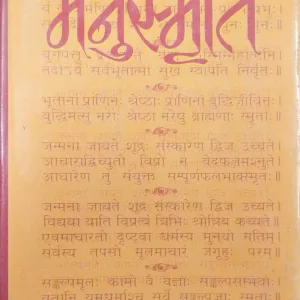 मनुस्मृति
युगपत्तु
तदाऽयं सर्वभूतात्मा सुखं स्वपिति निर्वृतः
भूतानां प्राणिनः श्रेष्ठाः प्राणिनां बुद्धिजीविनः
बुद्धिमत्सु नराः श्रेष्ठा नरेषु ब्राह्मणाः स्मृताः
जन्मना जायते शूद्रः संस्कारेण द्विज उच्यते
आचाराद्विच्युतो विप्रो न वेदफलमश्नुते
आचारेण तु संयुक्तः सम्पूर्णफलभाक्स्मृतः
जन्मना जायते शूद्रः संस्कारेण द्विज उच्यते
विद्यया याति विप्रत्वं त्रिभिः श्रोत्रिय उच्यते
एवमाचारतो दृष्ट्वा धर्मस्य मुनयो गतिम्
सर्वस्य तपसो मूलमाचारं जगृहुः परम्
सङ्कल्पमूलः कामो वै यज्ञाः सङ्कल्पसम्भवाः
व्रतानि यमधर्माश्च सर्वे सङ्कल्पजाः स्मृताः